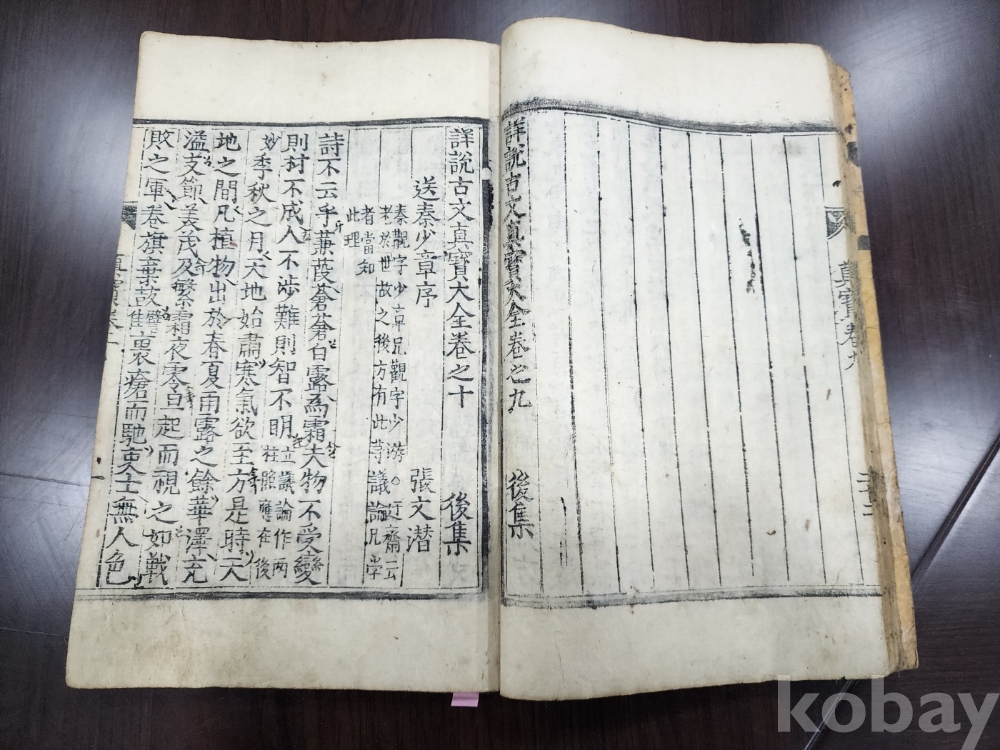 詳說古文眞寶大全卷之九
後集
眞寶卷九
詳說古文眞寶大全卷之十
後集
送秦少章序
張文潛
秦觀字少章兄觀字少游○迂齋云
老於世故之後方有此等議論凡學
者當知
此理
詩不云乎蒹葭蒼蒼白露爲霜夫物不受變
則材不成人不涉難則智不明
立議論作兩
柱照應在後
妙季秋之月天地始肅寒氣欲至方是時天
地之間凡植物出於春夏雨露之餘華澤充
溢支節美茂及繁霜夜零旦起而視之如戰
敗之軍卷旗棄鼓
裹瘡而馳吏士無人色
kobay